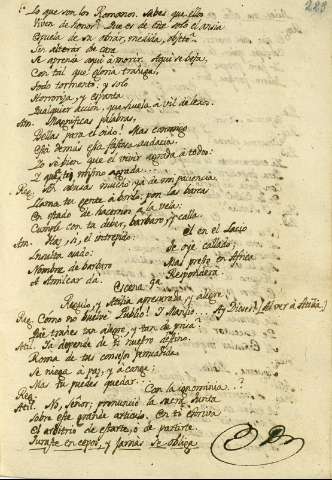 223
Lo que son los Romanos. Sabes que ellos
Viven de honor? Que es de este solo el ansia
Escuela de su obrar, medida, objeto?
Sin alterar de cara
Se aprende aqui à morir. Aqui se deja,
Con tal que gloria trahiga,
Todo tormento, y solo
Horroriza, y espanta
Qualquier accion, que huela à vil
Am. Magnificas palabras,
Bellas para el oido! Mas
està demàs esa fastosa audacia.
Yo sè bien que el vivir agrada à todos:
Y que, tù mismo agrada...
Reg. Eh abusa mucho yà de mi paciencia.
Llama tu gente à bordo, pon las barca
En estado de hacernos à la vela:
Cumple con tu deber, barbaro, y calla.
Am. Hàz, sì, el intrepido:
Insulta audo:
Nombre de barbaro
A Amilcar dà.
El en el Lacio
Se oye callado;
Mas presto en Africa
Responderà
Escena 7a
Regulo, y Atilia apresurada, y alegre.
Reg. Como no buelve Publio! I Manlio? Ay Dioses! [Al ver à Atilia.]
Què trahes tan alegre, y tan de prisa?
Atil. Ya depende de ti nuestro destino.
Roma de tus consejos
Se niega à paz, y à cange:
Mas tu puedes quedar.
Reg. Con la ignominia...?
Atil. No, Señor; pronunciò la sacra Junta
Sobre este grande articulo. En tò estriva
el arbitrio de estarte, ò de partirte.
Juraste en cepos, y jamàs se obliga